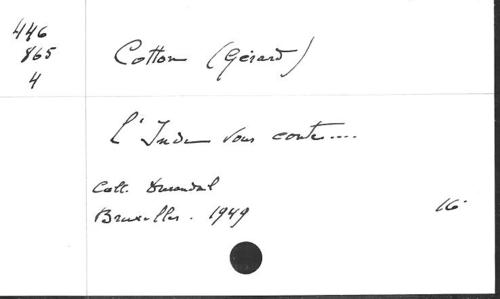 446
865
4
Cotton (Gérard)
L'Inde vous conte....
Coll. Durendal
Bruxelles. 1949
16°